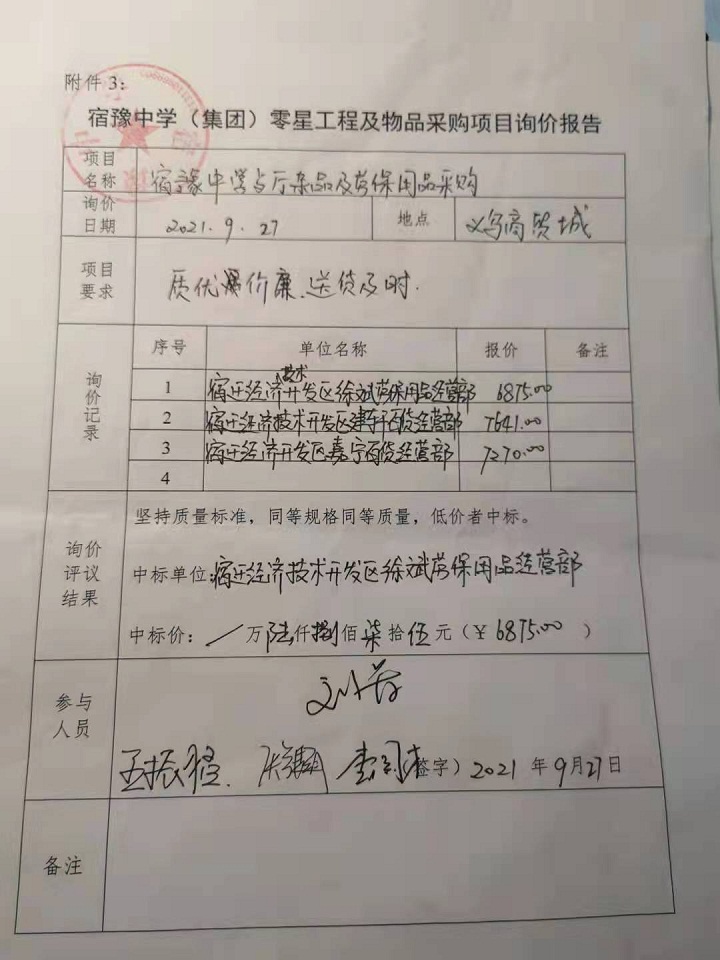 附件3：
宿豫中学（集团）零星工程及物品采购项目询价报告
项目名称 宿豫中学与厅杂品及劳保用品采购
询价日期 2021.9.27 地点 义乌商贸城
项目要求 质优价廉、送货及时.
询价记录 序号 单位名称 报价 备注
1 宿迁经济技术开发区徐斌劳保用品经营部 6875.00
2 宿迁经济技术开发区建宇百货经营部 7641.00
3 宿迁经济开发区嘉宁百货经营部 7270.00
4
询价评议结果 坚持质量标准，同等规格同等质量，低价者中标。
中标单位：宿迁经济技术开发区徐斌劳保用品经营部
中标价：／万陆仟捌佰柒拾伍元（￥6875.00）
参与人员
（签字）2021年9月27日
备注